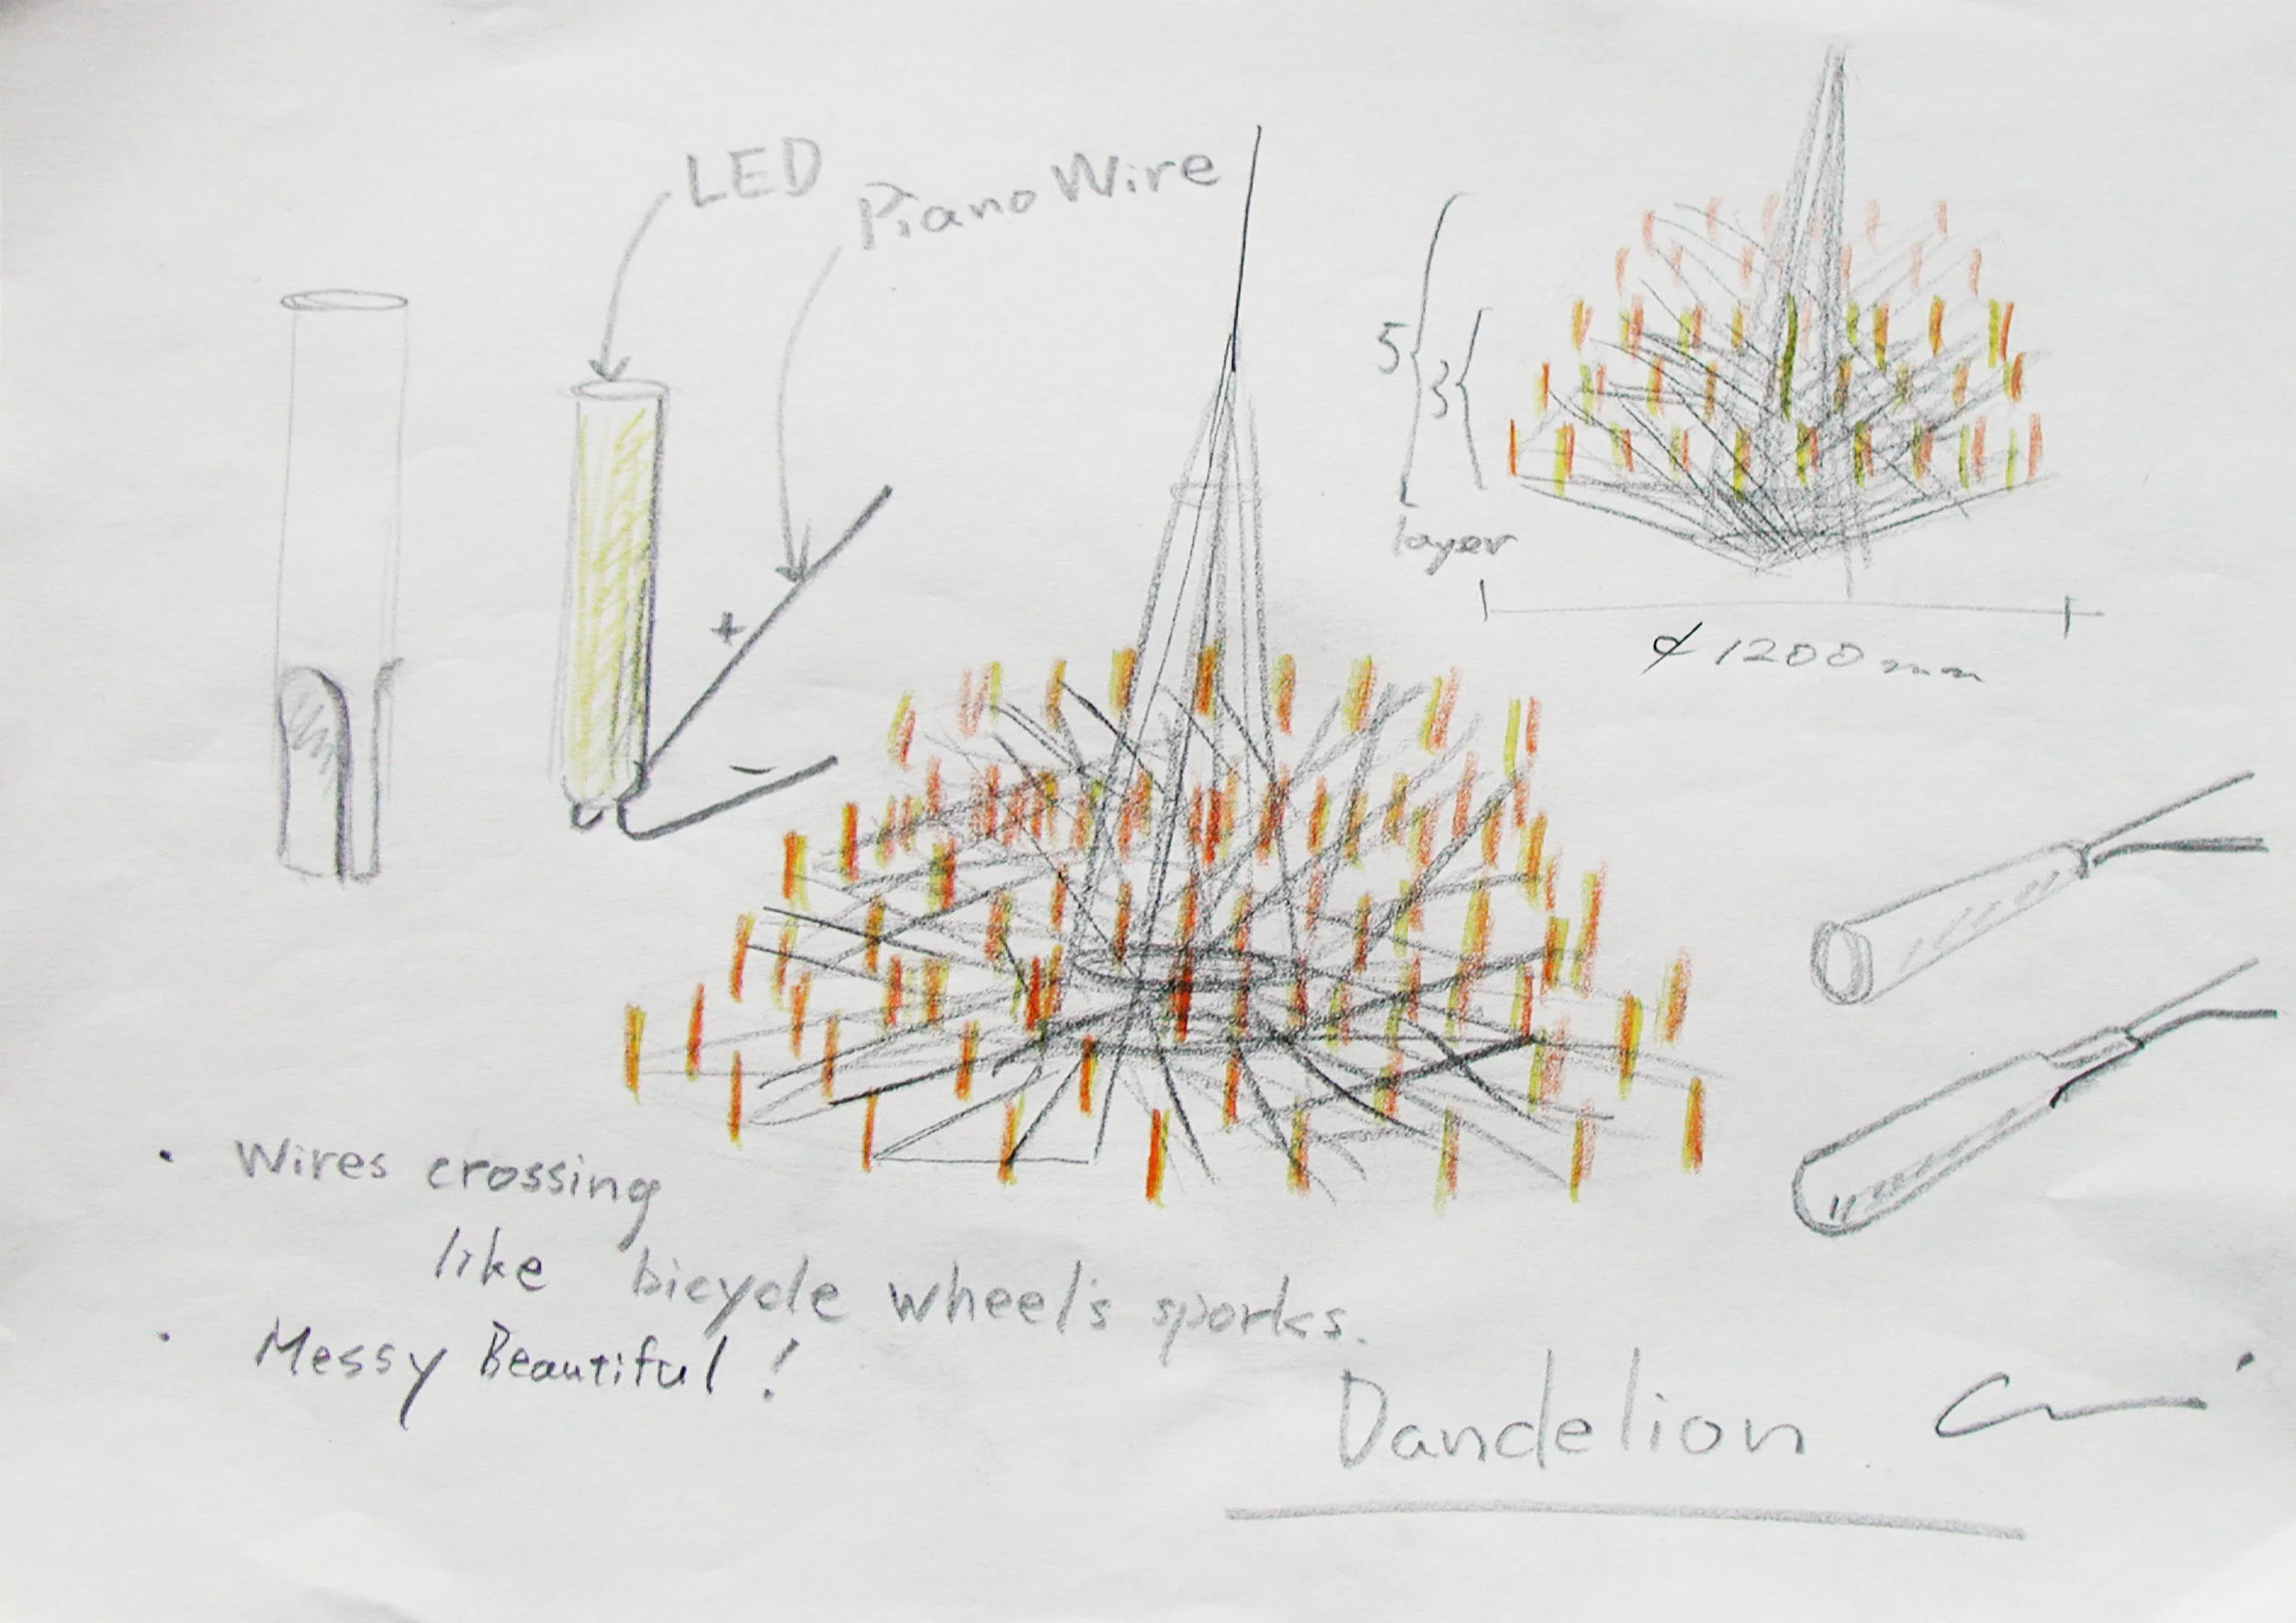 LED
Piano Wire
+
-
5
3
layer
¢1200mm
• Wires crossing
like bicycle wheel's sporks.
• Messy Beautiful!
Dandelion